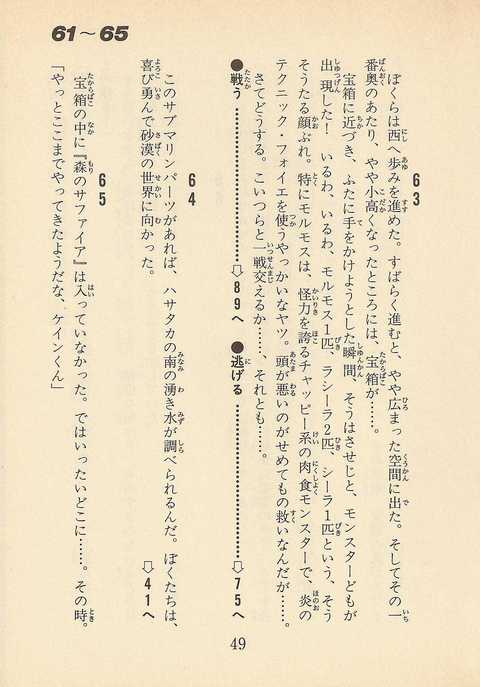 61〜65
63
ぼくらは西へ歩みを進めた。すばらく進むと、やや広まった空間に出た。そしてその一
番奥のあたり、やや小高くなったところには、宝箱が……。
宝箱に近づき、ふたに手をかけようとした瞬間、そうはさせじと、モンスターどもが
出現した！　いるわ、いるわ、モルモス1匹、ラシーラ2匹、シーラ1匹という、そう
そうたる顔ぶれ。特にモルモスは、怪力を誇るチャッピー系の肉食モンスターで、炎の
テクニック・フォイエを使うやっかいなヤツ。頭が悪いのがせめてもの救いなんだが……。
さてどうする。こいつらと一戦交えるか……、それとも……。
●戦う……………………⇨89へ　●逃げる……………………⇨75へ
64
このサブマリンパーツがあれば、ハサタカの南の湧き水が調べられるんだ。ぼくたちは、
喜び勇んで砂漠の世界に向かった。　⇨41へ
65
宝箱の中に『森のサファイア』は入っていなかった。ではいったいどこに……。その時。
「やっとここまでやってきたようだな、ケインくん」
49